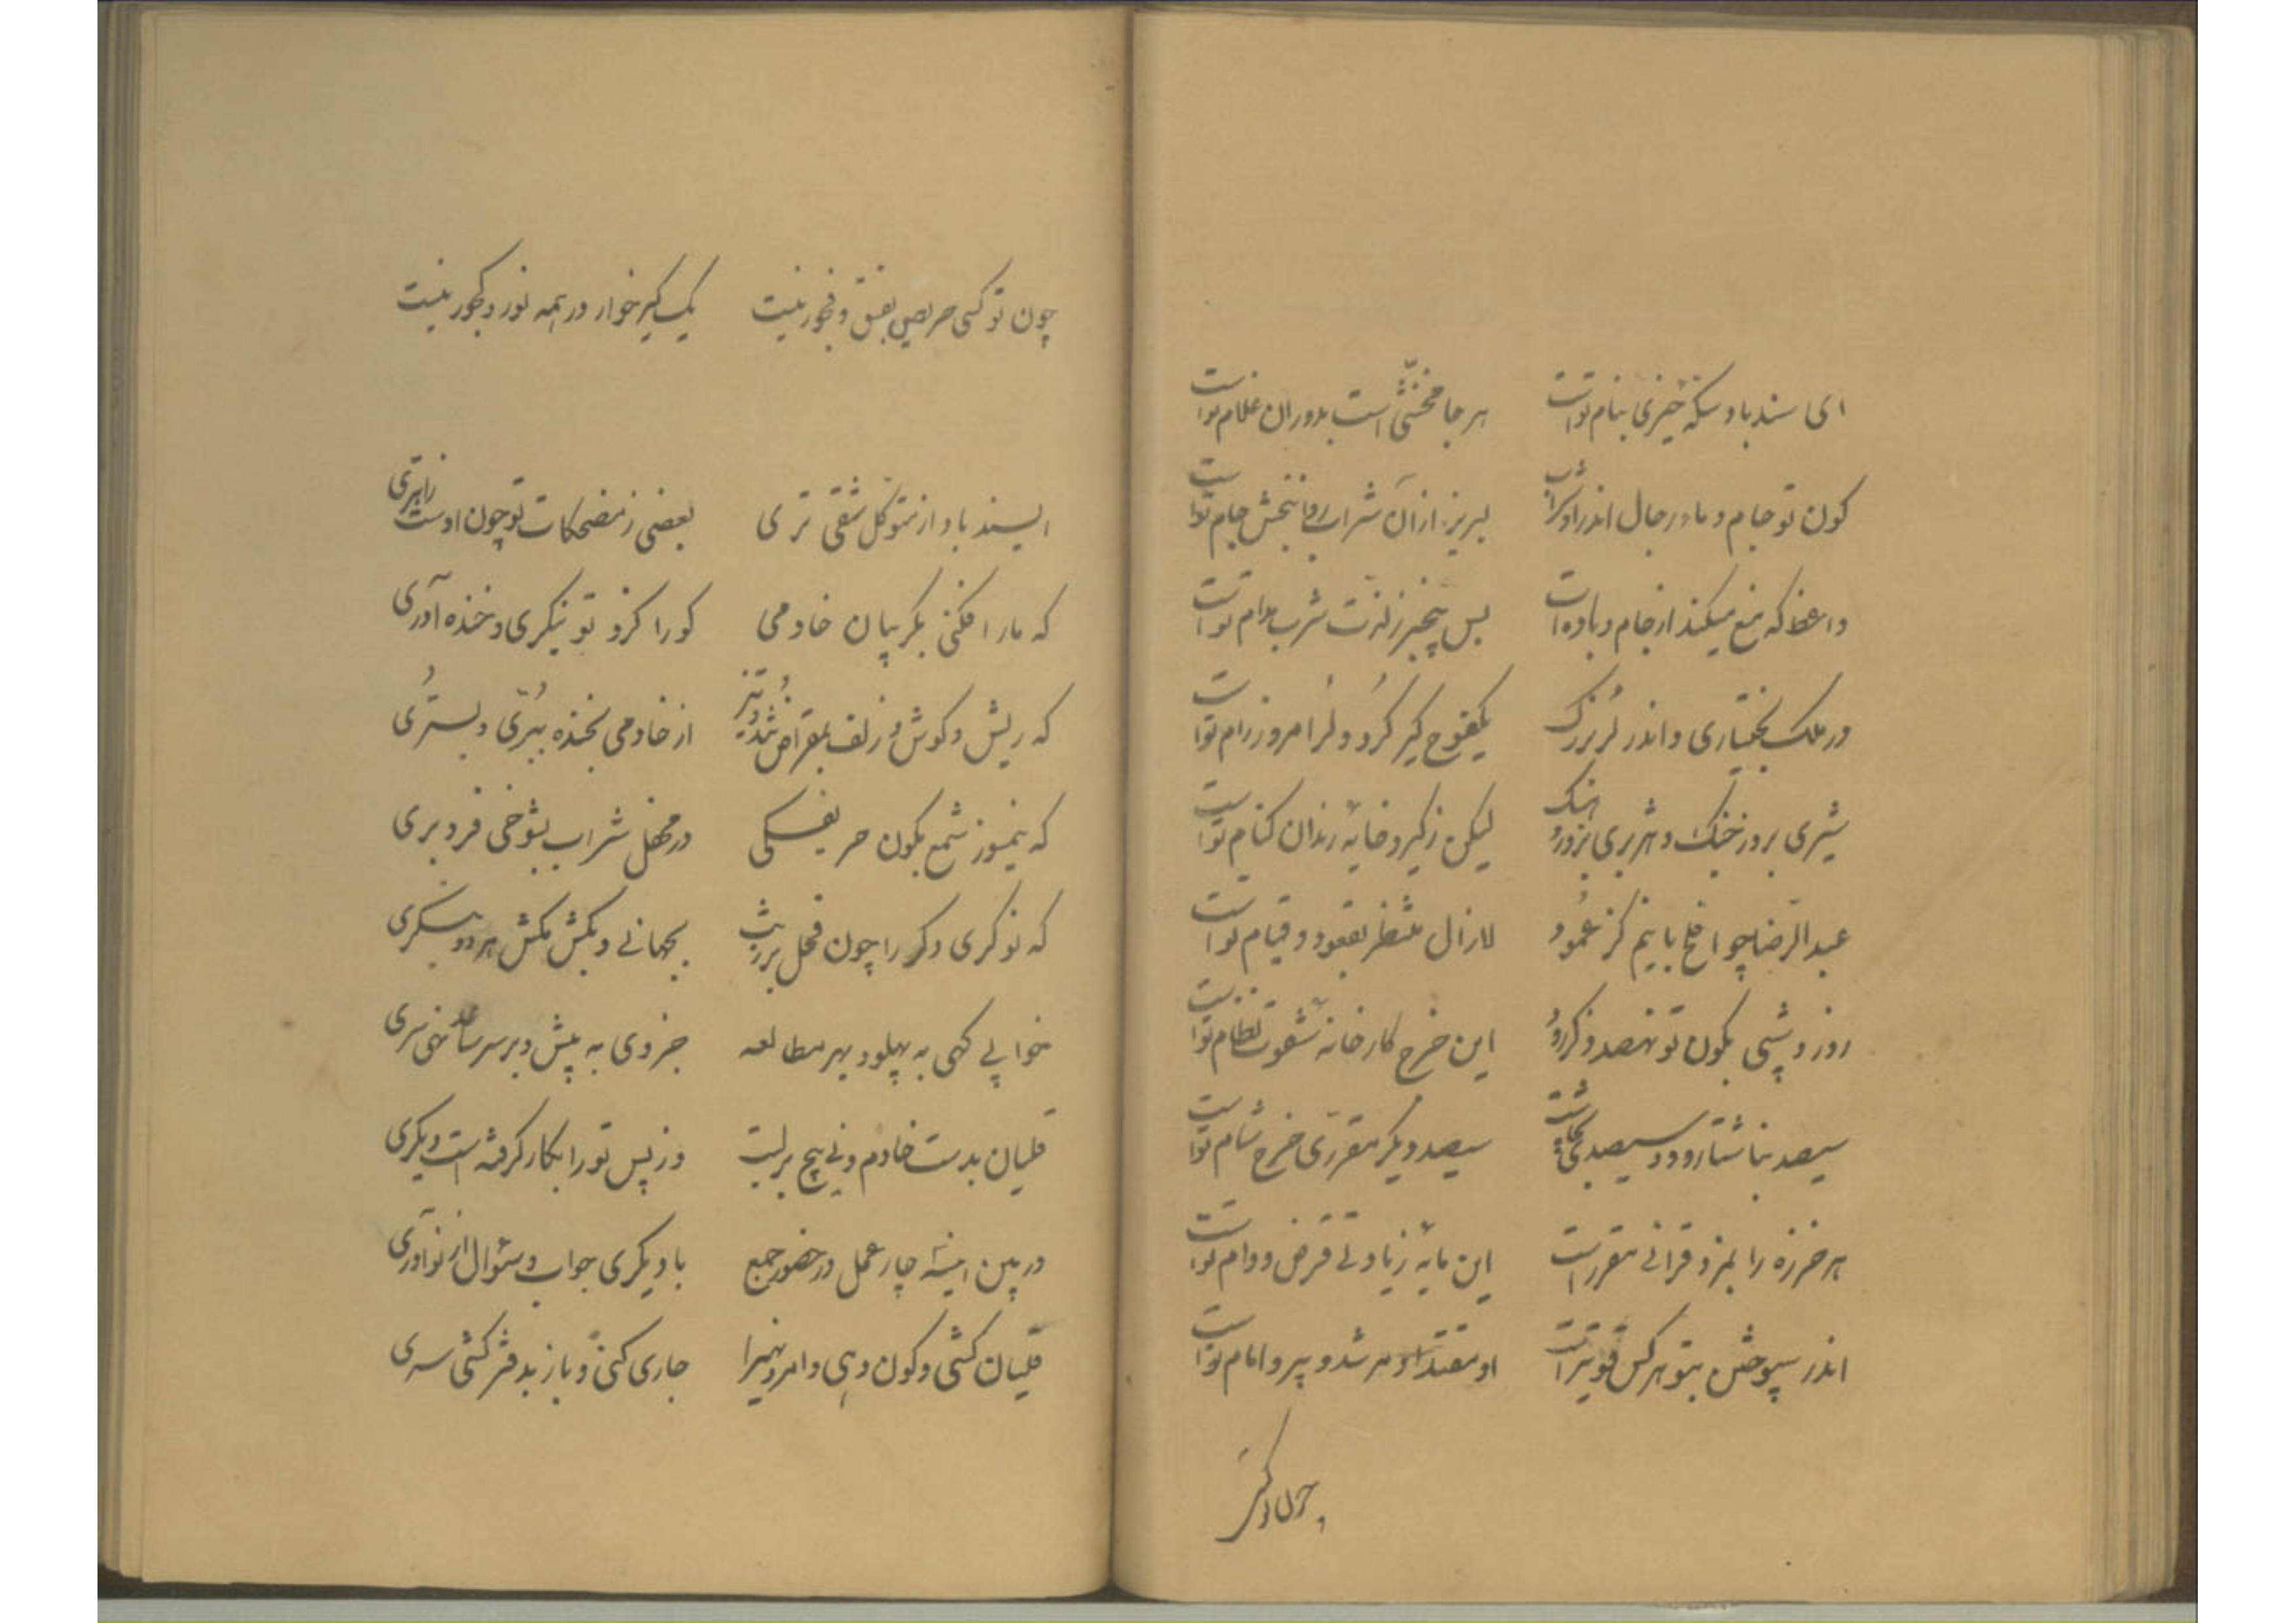 ای سندباد سکه خیزی بنام تو است هر جا مخنثی است بدوران غلام تو است
کون تو جام و ماء رجال اندر او شراب لبریز از آن شراب روانبخش جام تو است
واعظ که منع میکند از جام و باده است بس بیخبر ز لذت شرب مدام تو است
در ملک بختیاری و اندر لر بزرگ یکفوج کیر کرد و لر امروز رام تو است
شیری بروز جنگ و هژبری بروز لیکن ز کیر و خایه رندان کنام تو است
عبدالرضا چو افلح با نیم گز عمود لازال منتظر بقعود و قیام تو است
روز و شبی بکون تو نهصد ذکر رود این خرج کارخانه شهوت نظام تو است
سیصد بناشتا رود و سیصد بچاشت سیصد دیگر مقرری خرج شام تو است
هر خرزه را بمزد قرانی مقرر است این مایه زیادتی قرض و وام تو است
اندر سپوختن بتو هر کس قویتر است او مقتدا و مرشد و پیر و امام تو است
چون تو کسی
چون تو کسی حریص بفسق و فجور نیست یک کیر خوار در همه نور و کجور نیست
ایسندباد از متوکل شقی تری بعضی ز مضحکات تو چون اوست
که مار افکنی بگریبان خادمی کو را گزد تو بنگری و خنده آوری
که ریش و گوش و زلف بمقراض تند و تیز از خادمی بخنده ببری و بستری
که نیمسوز شمع بکون حریفکی در محفل شراب بشوخی فرو بری
که نوکری دگر را چون فحل بجهانی و بکش مکش هر دو بنگری
خوابی گهی به پهلو و بهر مطالعه جزوی به پیش و بر سر ساعد نهی سری
قلیان بدست خادم و نی پیچ بر لبت وز پس تو را بکار گرفته است دیگری
در بین اینهمه چار عمل در حضور جمع با دیگری جواب و سئوال از نو آوری
قلیان کشی و کون دهی و امر و نهی را جاری کنی و باز بدفتر کشی سری